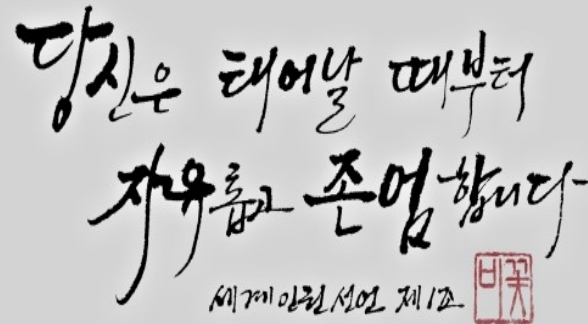 당신은 태어날 때부터
자유롭고 존엄합니다
세계인권선언 제1조
비꽃